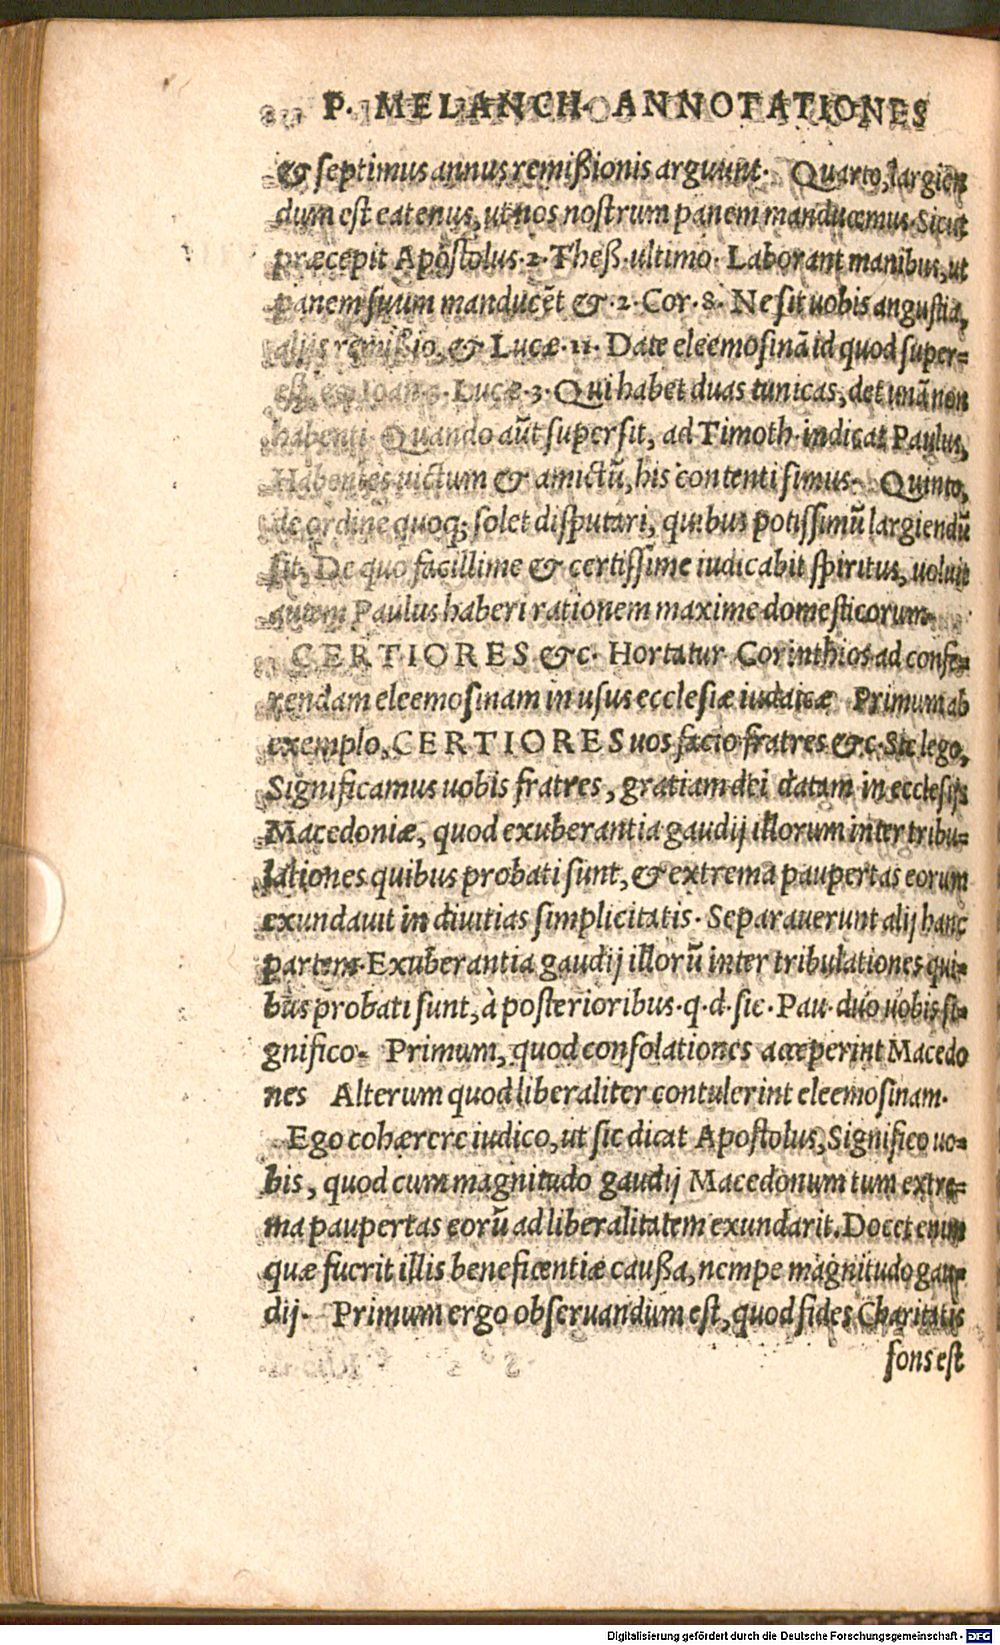 P. MELANCH. ANNOTATIONES
& septimus annus remißionis arguunt. Quarto, largien
dum est eatenus, ut nos nostrum panem manducemus. Sicut
præcepit Apostolus. 2. Theß. ultimo. Laborant manibus, ut
panem suum manducẽt & .2. Cor. 8. Ne sit uobis angustia,
alijs remißio, & Lucæ. 11. Date eleemosinã id quod super=
est, & Ioan. 3. Lucæ. 3. Qui habet duas tunicas, det unã non
habenti. Quando aũt supersit, ad Timoth. indicat Paulus,
Habentes uictum & amictũ, his contenti simus. Quinto,
de ordine quoq; solet disputari, quibus potissimũ largiendũ
sit, De quo facillime & certissime iudicabit spiritus, uoluit
autem Paulus haberi rationem maxime domesticorum.
CERTIORES &c. Hortatur Corinthios ad confe=
rendam eleemosinam in usus ecclesiæ iudaicæ Primum ab
exemplo, CERTIORES uos facio fratres &c. Sic lego,
Significamus uobis fratres, gratiam dei datam in ecclesijs
Macedoniæ, quod exuberantia gaudij illorum inter tribu=
lationes quibus probati sunt, & extrema paupertas eorum
exundauit in diuitias simplicitatis. Separauerunt alij hanc
partem. Exuberantia gaudij illorũ inter tribulationes qui=
bus probati sunt, à posterioribus. q. d. sic. Pau. duo uobis si=
gnifico. Primum, quod consolationes acceperint Macedo
nes Alterum quod liberaliter contulerint eleemosinam.
Ego cohærere iudico, ut sic dicat Apostolus, Significo uo=
bis, quod cum magnitudo gaudij Macedonum tum extre=
ma paupertas eorũ ad liberalitatem exundarit. Docet enim
quæ fuerit illis beneficentiæ caußa, nempe magnitudo gau=
dij. Primum ergo obseruandum est, quod fides Charitatis
fons est
Digitalisierung gefördert durch die Deutsche Forschungsgemeinschaft - DFG